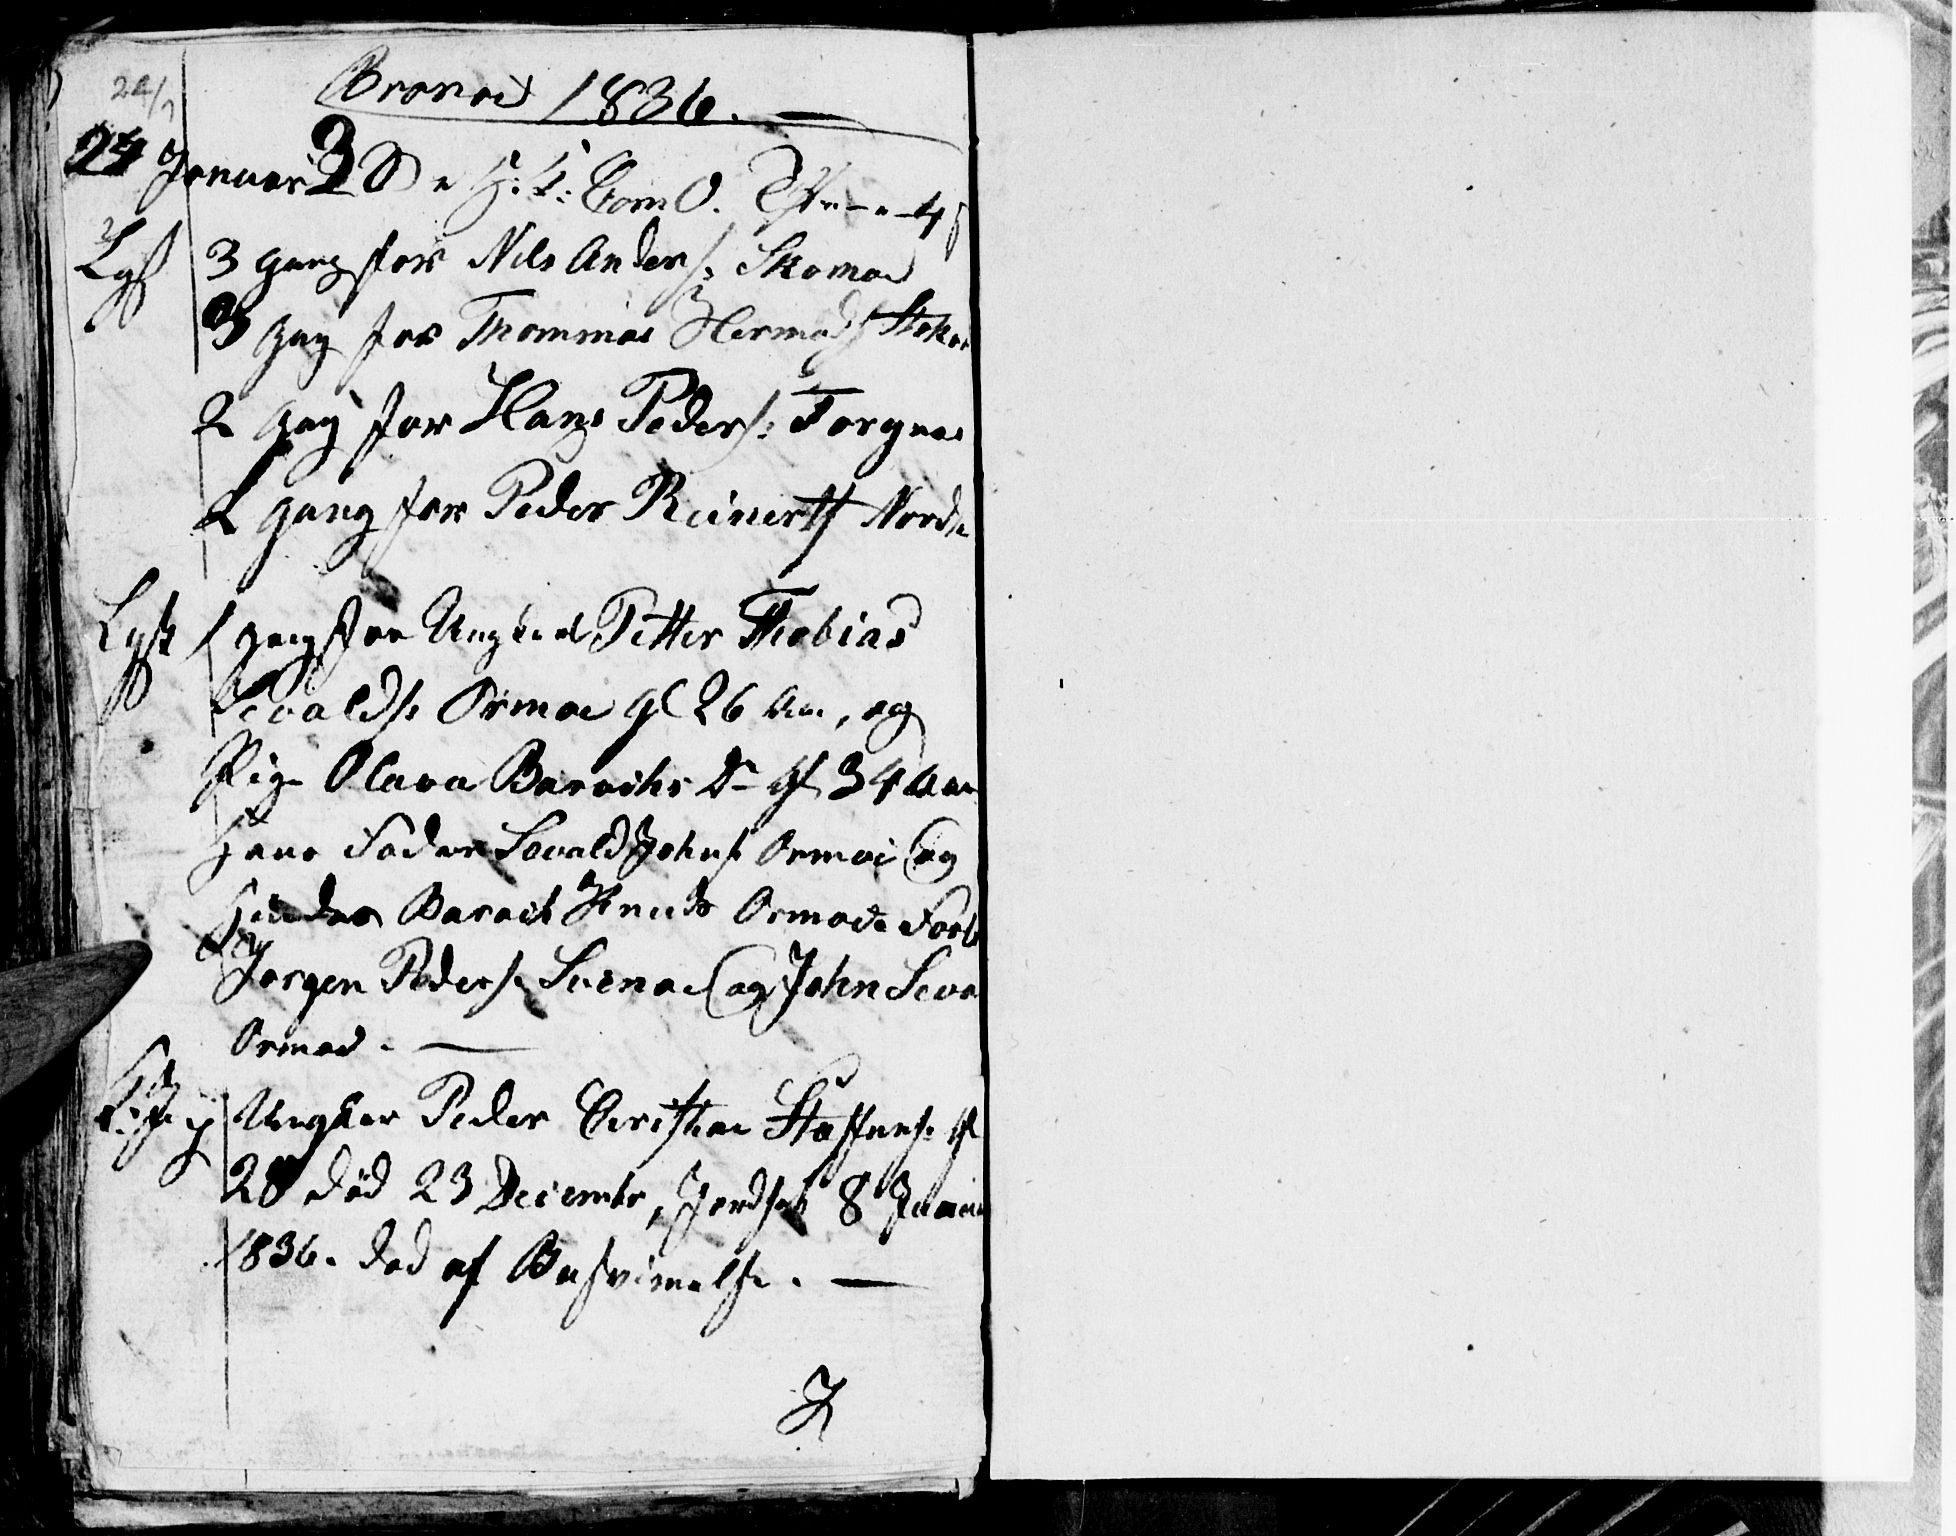 24/1
Bronöe 1836. —
24 Januar 3 S e H. 3 K: Com 0. Off — 4 s
Lys 3 gang for Nils Anders: Skomoe
3 gag for Thommas Hermods
2 gag for Hans Peders: Torgnes
2 gang for Peder Reinerts
Lyst 1 gang for Ungkarl Petter Thobias
Sevalds: Ormøe gl 26 Aar, og
Pige Olava Barochs Dr gl 34 Aar
Hans Fader Sevald Johns: Ormøe og
Hendes Baroch Knuds Ormøe Forl
Jørgen Peders: og John Seva
Ormøe. —
Ungkar Peder Christian Staffens: gl
28 død 23 Decembr, Jordsat 8 Januar
1836. død af Besvimelse. —